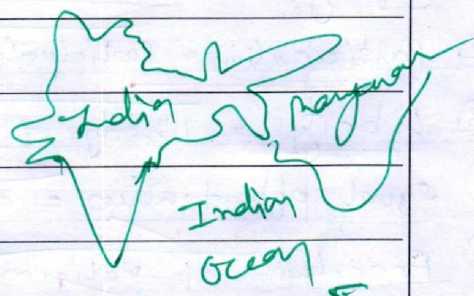 India Myanmar
Indian
Ocean